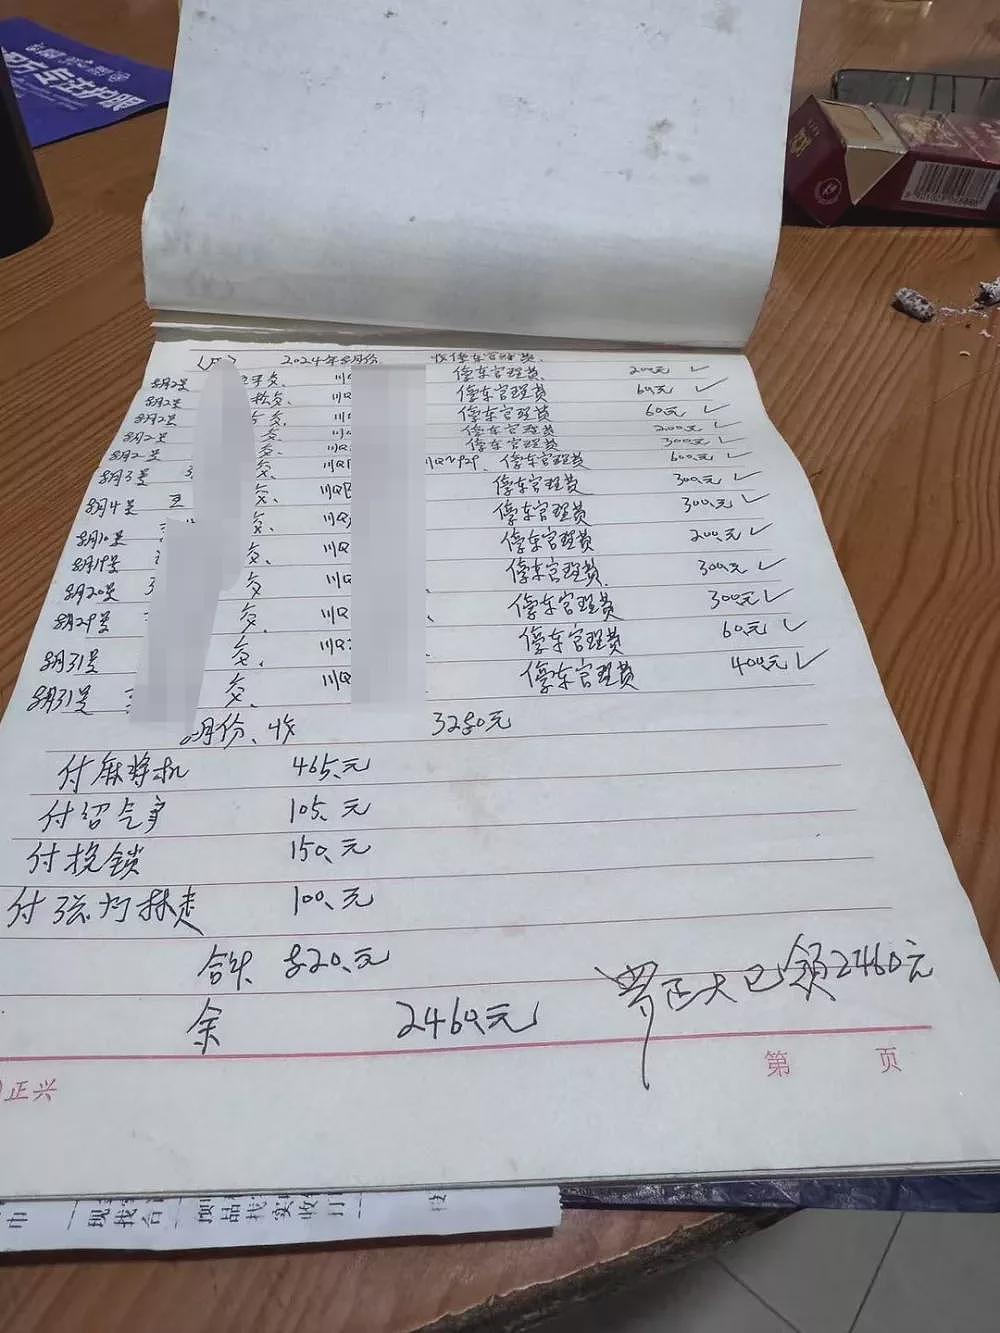 2024年8月份 收停车管理费
8月2号 交、 川Q 停车管理费 200元 ✓
8月2号 交、 川Q 停车管理费 60元 ✓
8月2号 交、 川Q 停车管理费 60元 ✓
8月2号 交、 川Q 停车管理费 200元 ✓
8月2号 交、 川Q 停车管理费 300元 ✓
8月3号 交、 川Q 停车管理费 600元 ✓
8月4号 王 交、 川Q 停车管理费 300元 ✓
8月10号 交、 川Q 停车管理费 300元 ✓
8月19号 交、 川Q 停车管理费 200元 ✓
8月20号 交 川Q 停车管理费 300元 ✓
8月29号 交、 川Q 停车管理费 300元 ✓
8月31号 交、 川Q 停车管理费 60元 ✓
8月31号 交、 川Q 停车管理费 400元 ✓
月份、收 3280元
付麻将机 465元
付 105、元
付挖锁 150、元
付 100、元
合计 820元
余 2460元
罗正大已领2460元
第 页
正兴